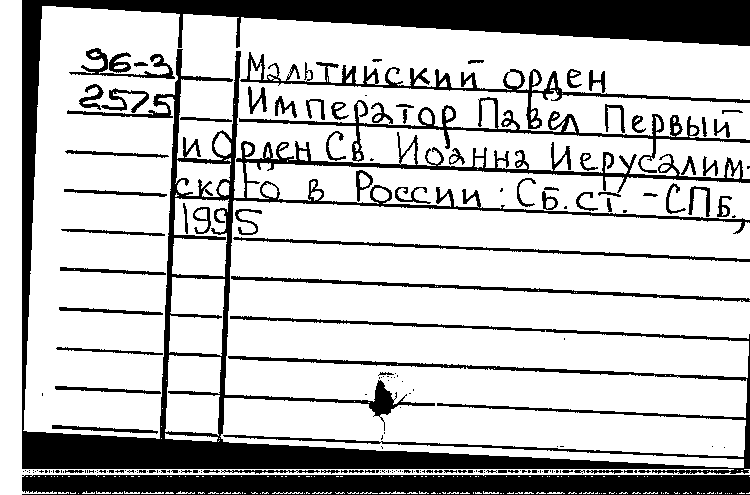 96-3 Мальтийский орден
2575 Император Павел Первый
и Орден Св. Иоанна Иерусалим-
ского в России : Сб.ст. - СПб.,
1995